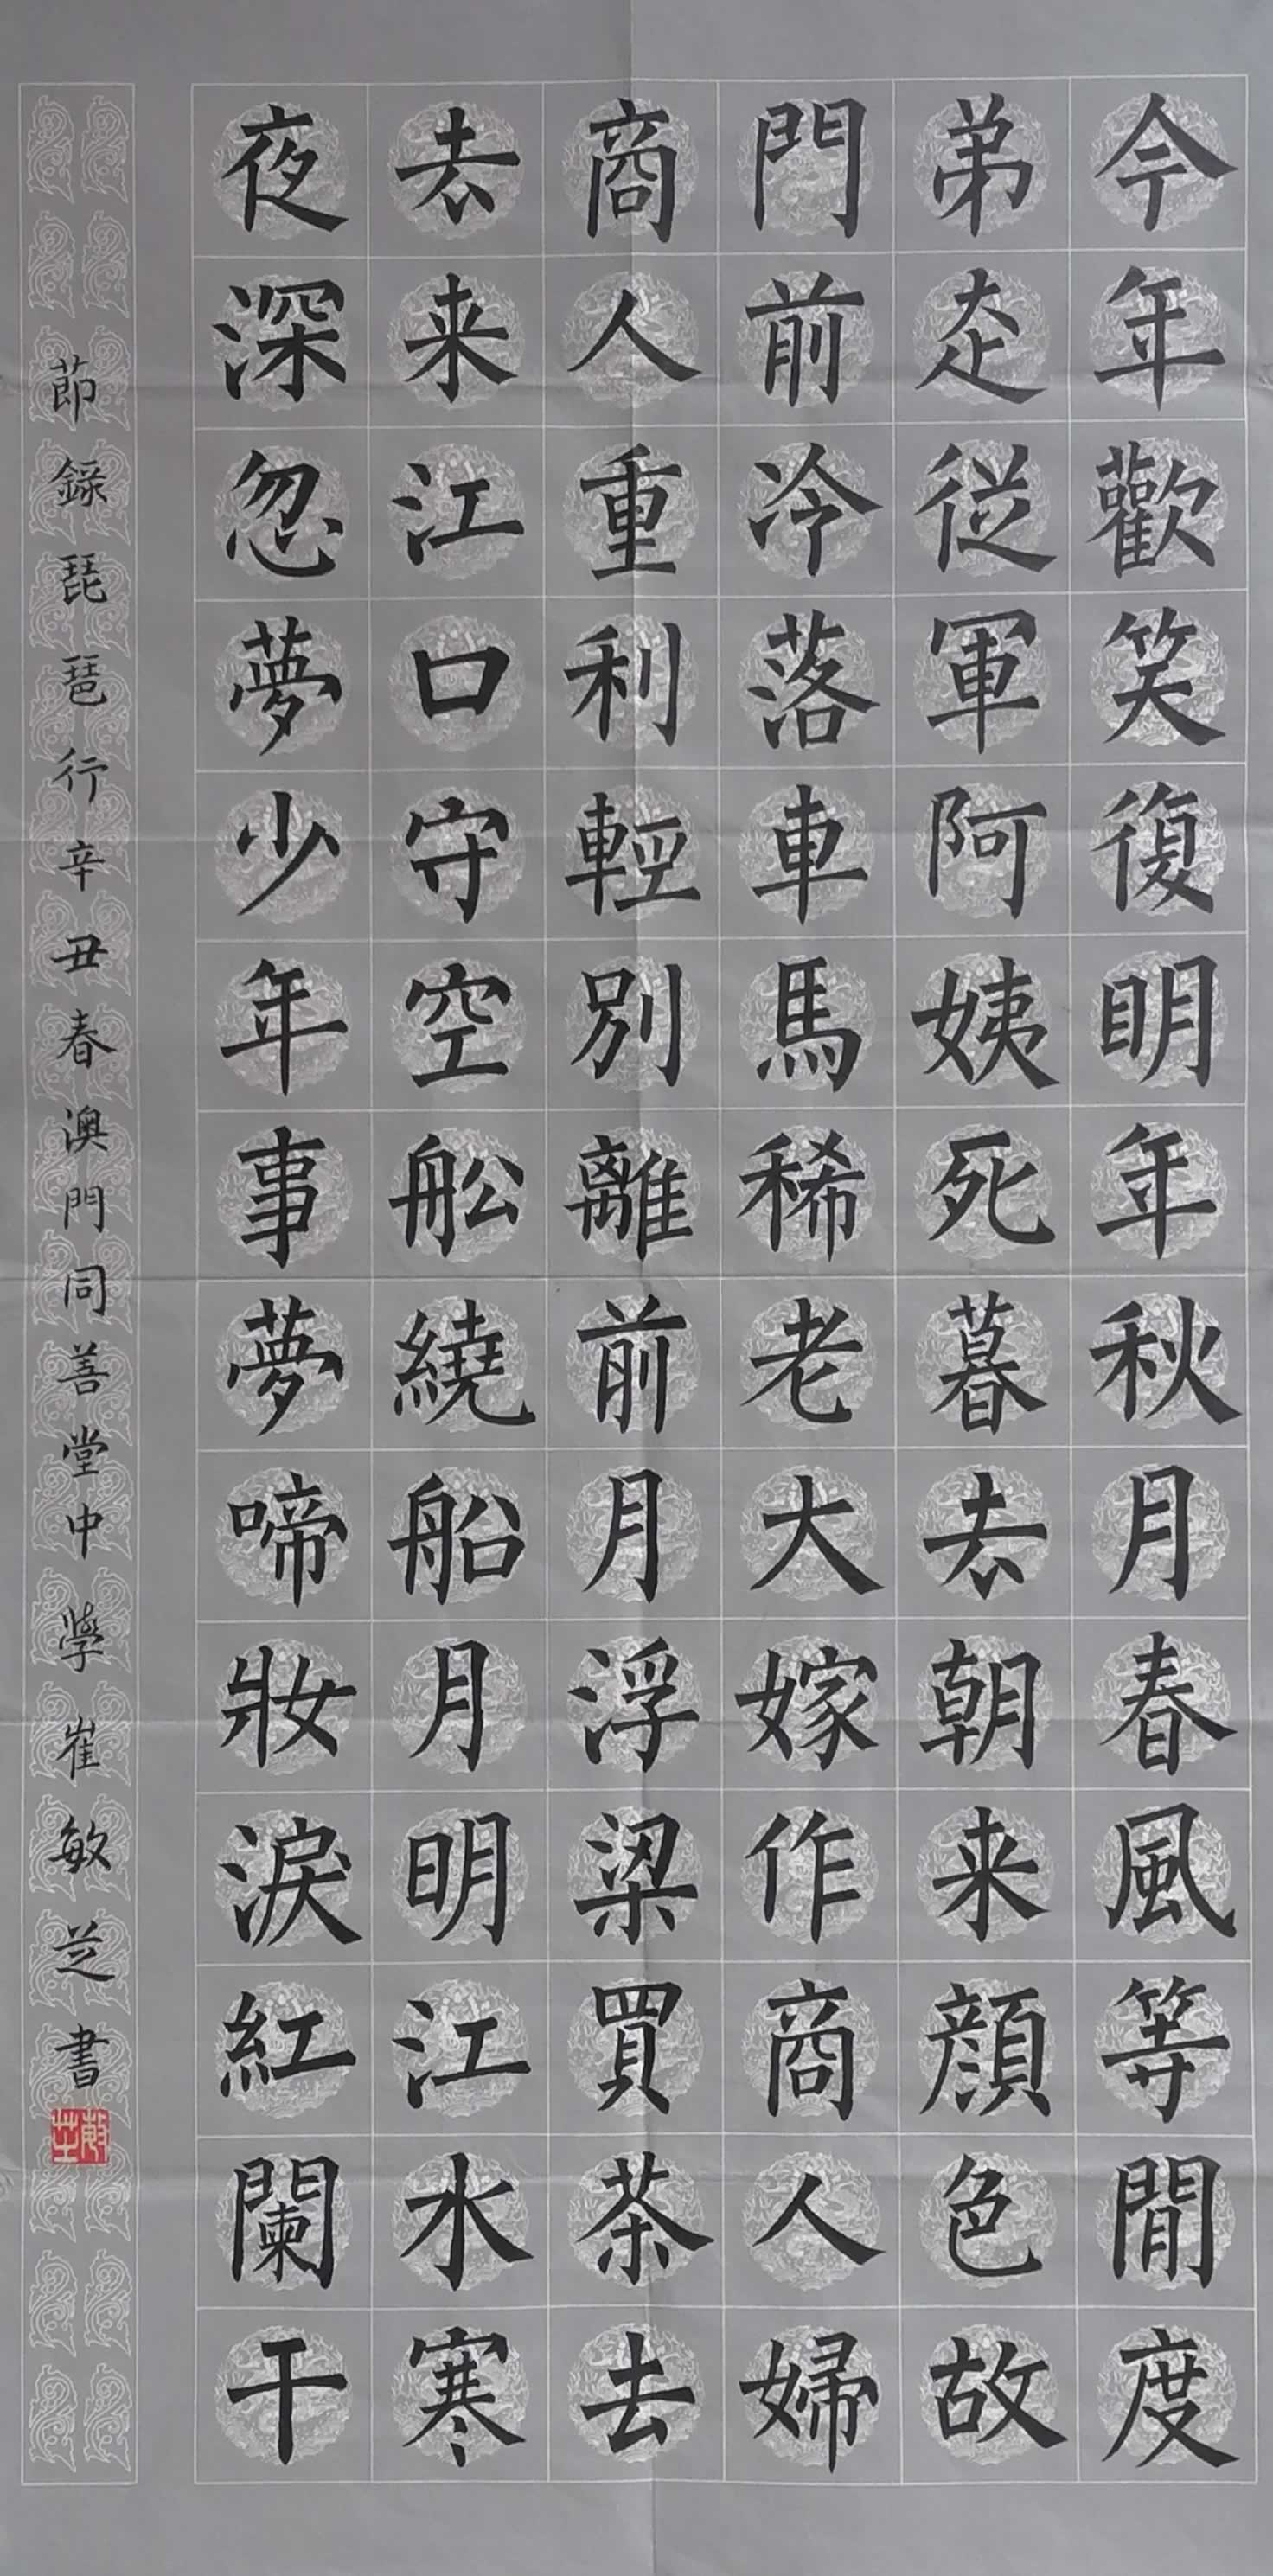 今年歡笑復明年秋月春風等閒度
弟走從軍阿姨死暮去朝来顔色故
門前冷落車馬稀老大嫁作商人婦
商人重利輕別離前月浮梁買茶去
去来江口守空舩繞船月明江水寒
夜深忽夢少年事夢啼妝淚紅闌干
節錄琵琶行辛丑春澳門同善堂中學崔敏芝書
敏芝